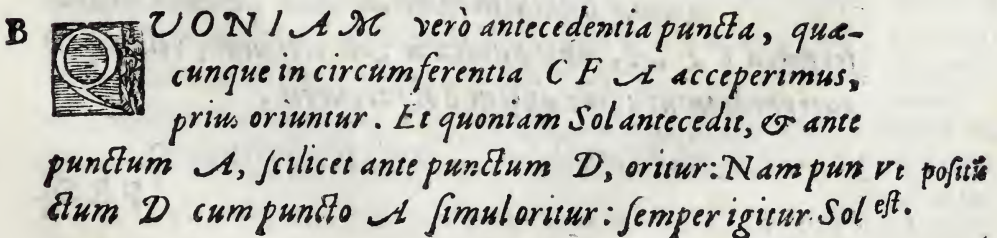 B QVONIAM verò antecedentia puncta, quæ-
cunque in circumferentia C F A acceperimus,
prius oriuntur. Et quoniam Sol antecedit, & ante
punctum A, ſcilicet ante punctum D, oritur: Nam pun Vt poſitũ
ctum D cum puncto A ſimul oritur: ſemper igitur Sol eſt.